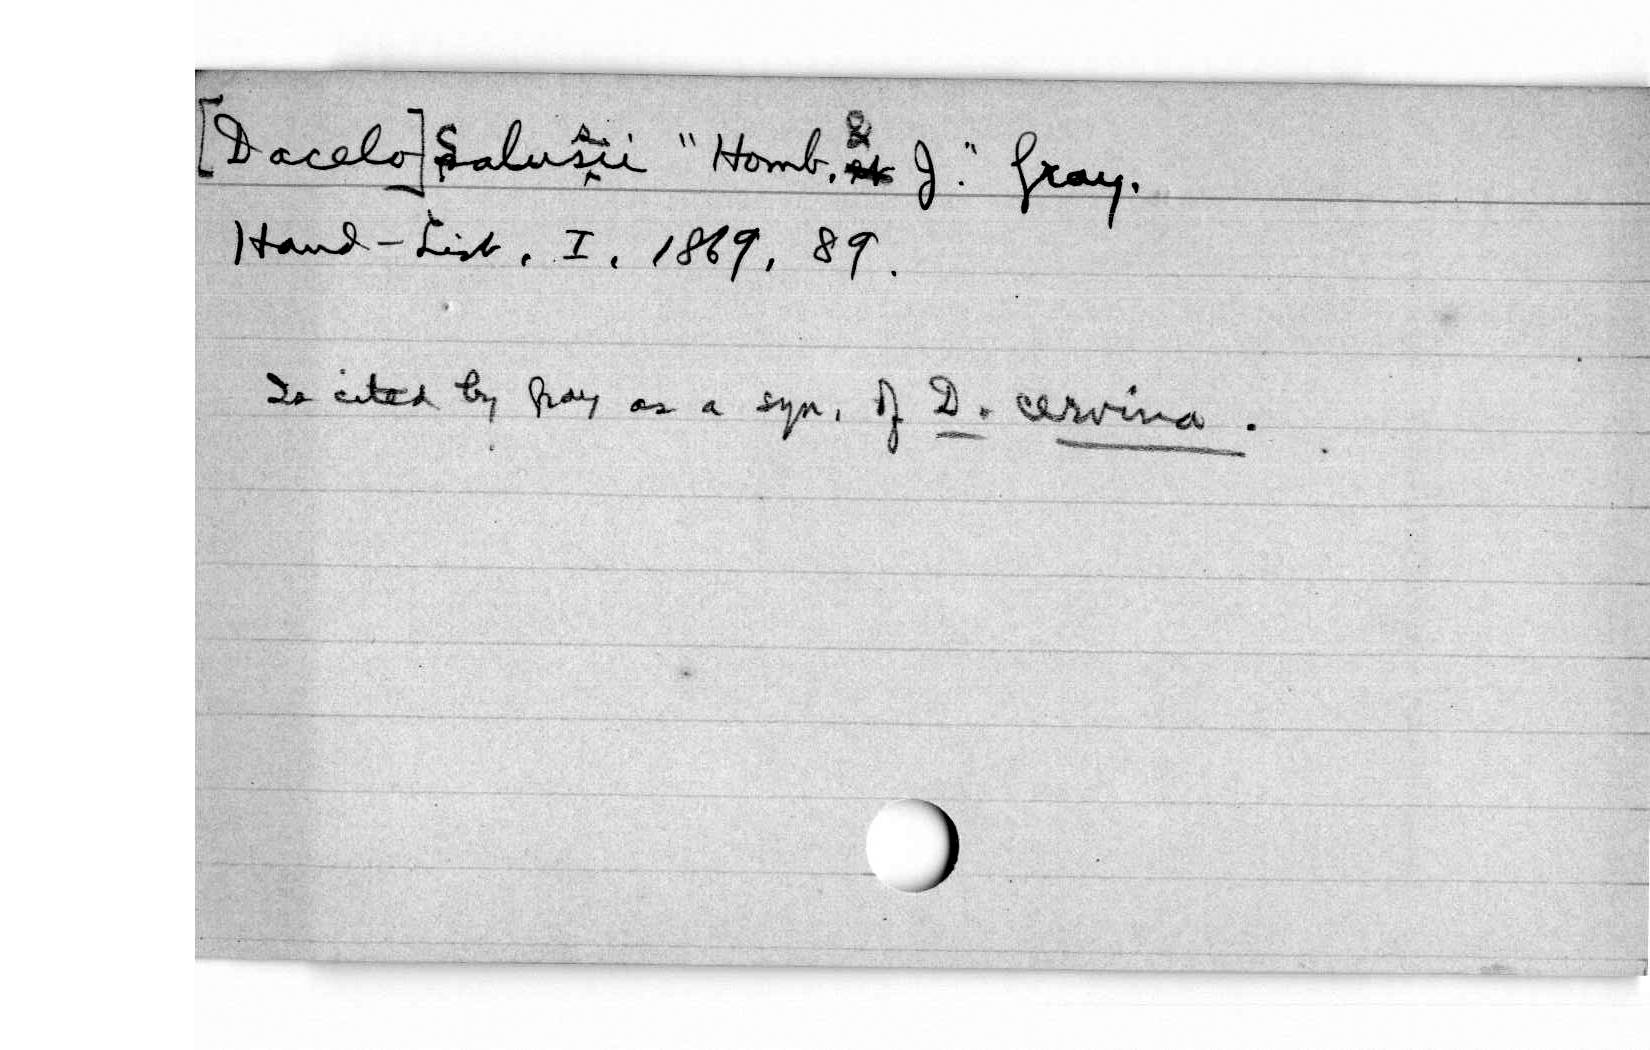 [Dacelo] Salussii "Homb. & J." Gray.
Hand-List, I, 1869, 89.
Is cited by Gray as a syn. of D. cervina.